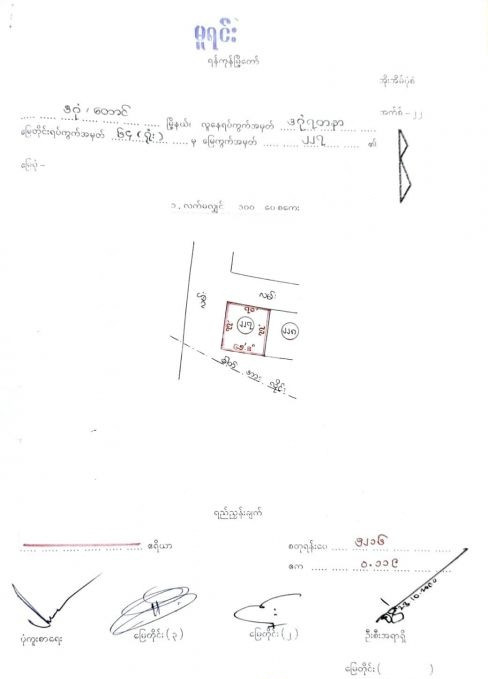 မူရင်း
ရန်ကုန်မြို့တော်
အိုးအိမ်ပုံစံ
အက်စ် - ၂၂
ဒဂုံ / တောင် မြို့နယ်၊ လူနေရပ်ကွက်အမှတ်
မြေတိုင်းရပ်ကွက်အမှတ် ၆၄ (ရုံး) မှ မြေကွက်အမှတ် ၂၂၇ ၏
မြေပုံ -
၁, လက်မလျှင် ၁၀၀ ပေ စကေး
လမ်း
လမ်း
၇၀'
၂၂၇
၂၂၈
ဓါတ် အား လိုင်း
ရည်ညွှန်းချက်
ဧရိယာ
စတုရန်းပေ ၅၂၁၆
ဧက ၀.၁၁၉
ပုံကူးစာရေး
မြေတိုင်း (၃)
မြေတိုင်း (၂)
ဦးစီးအရာရှိ
မြေတိုင်း ( )